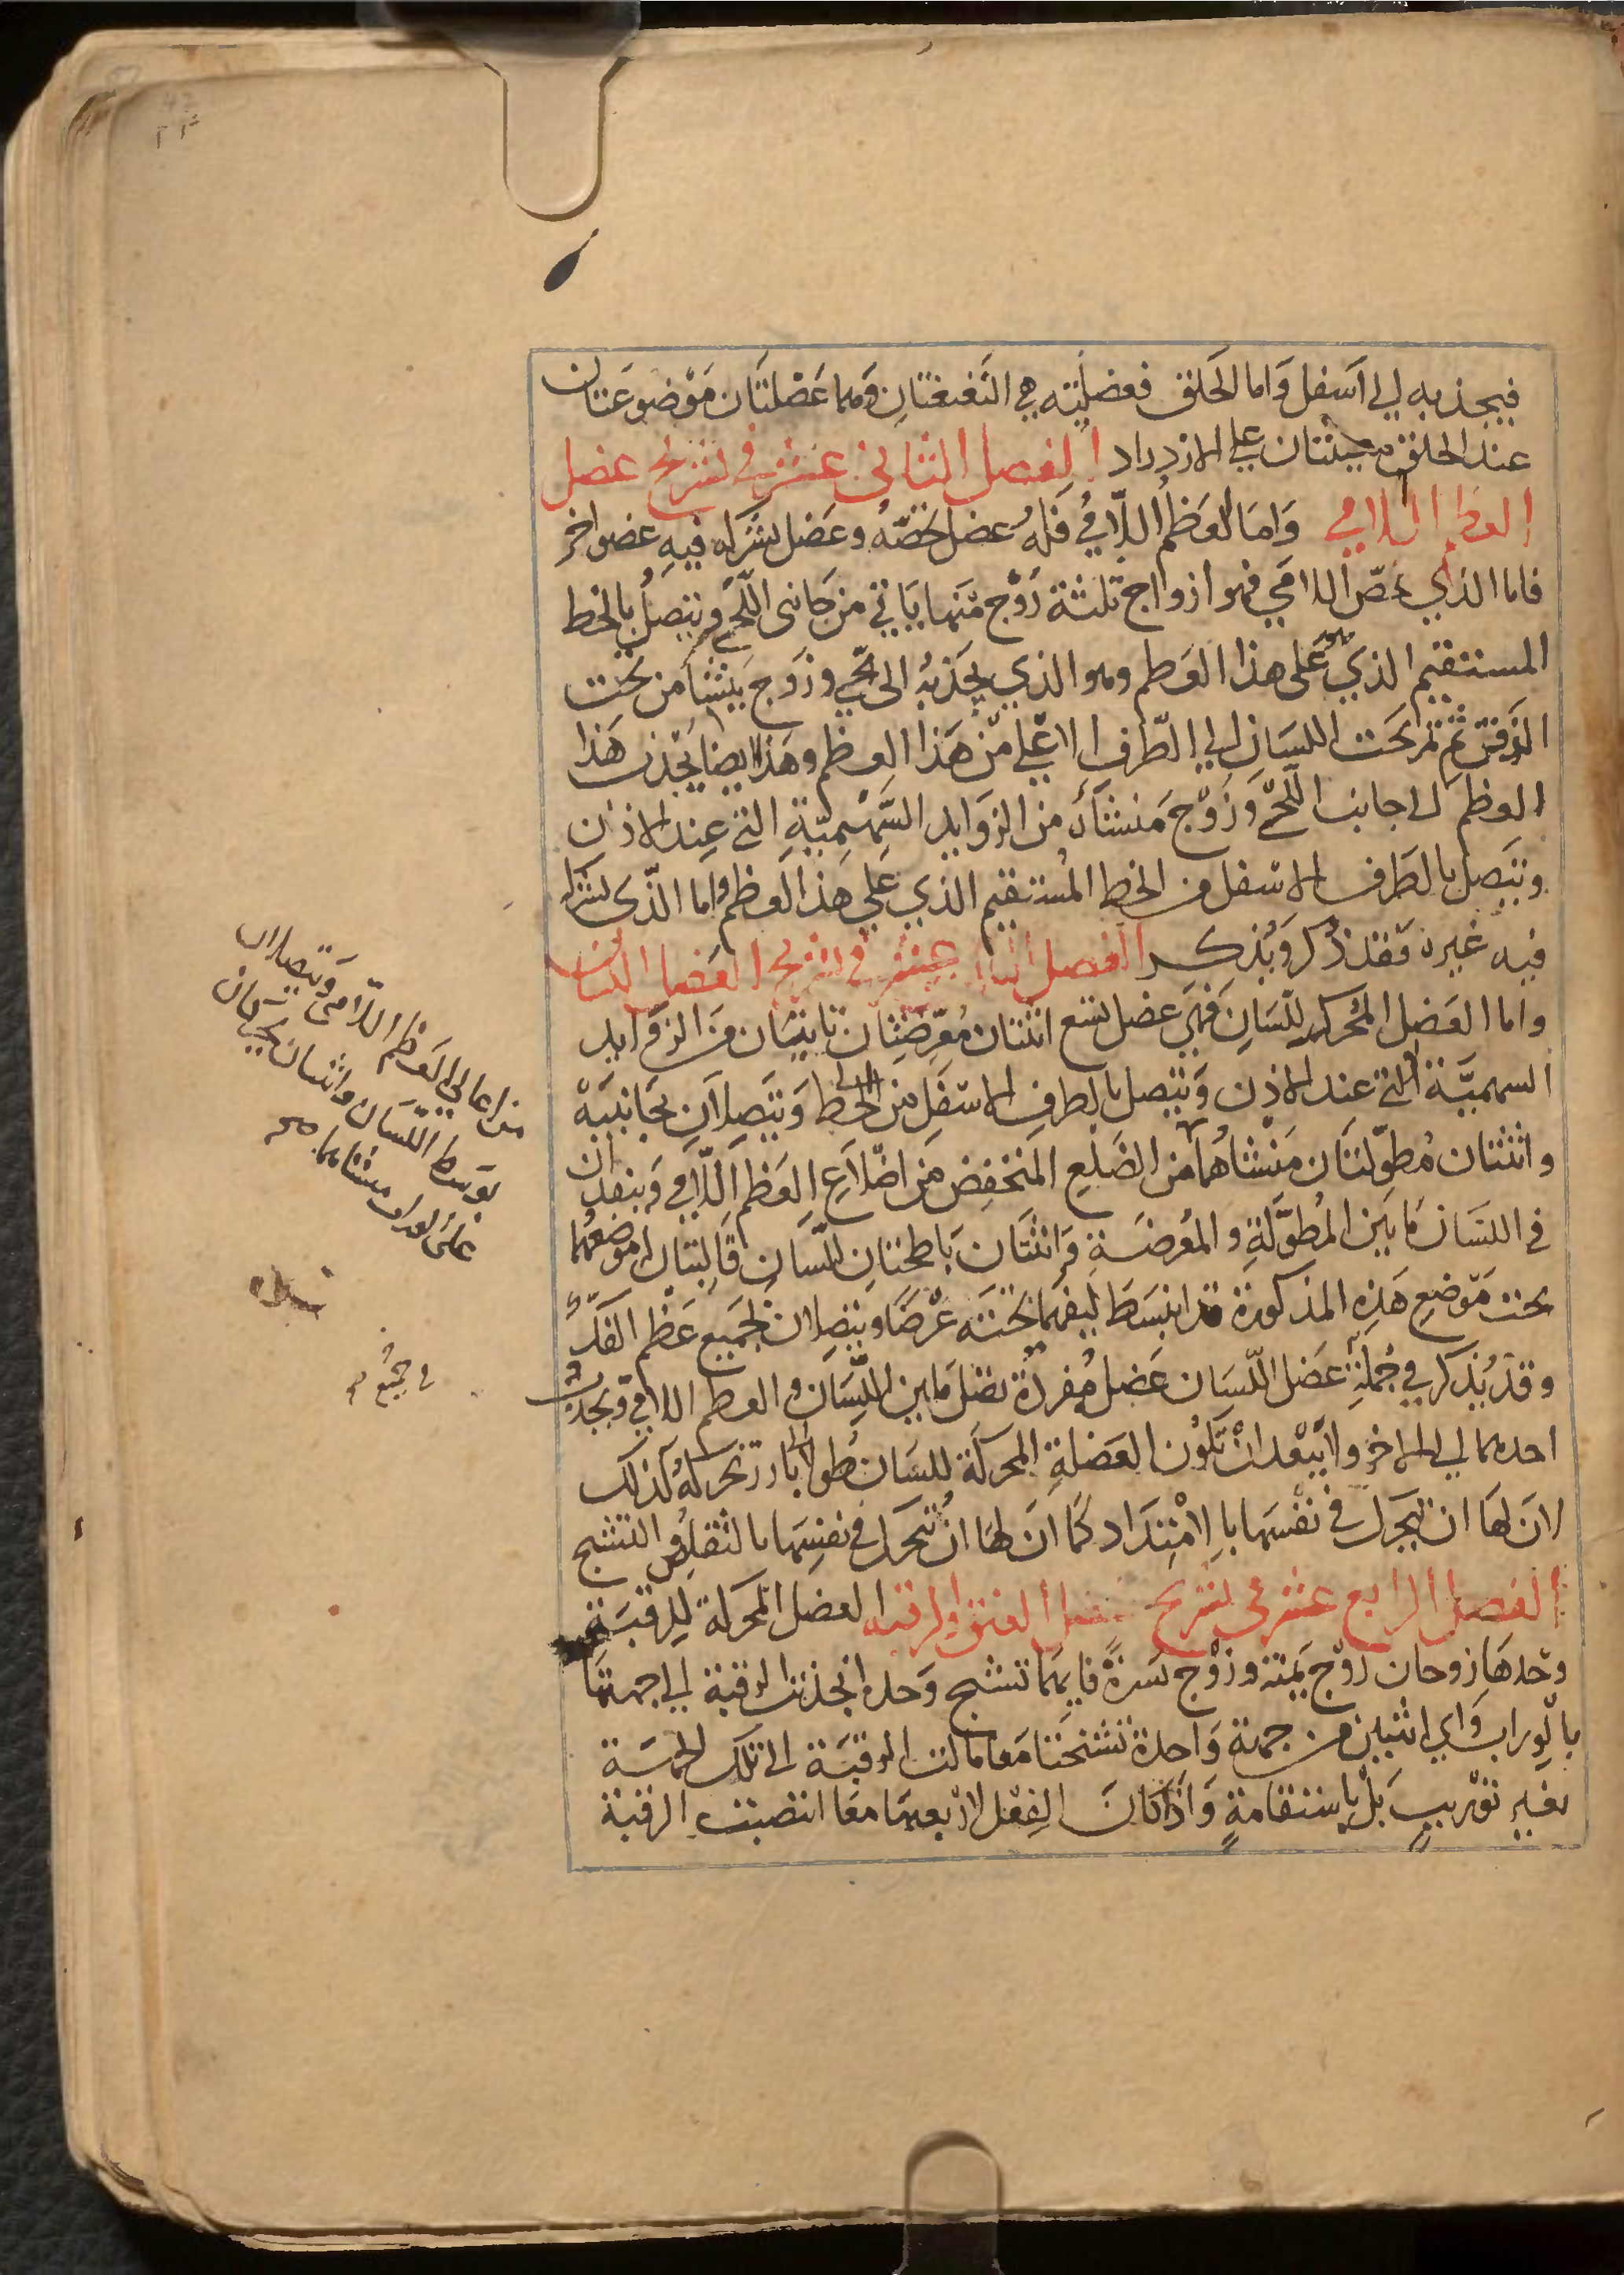 فيجذبه الى اسفل واما الحلق فعضلتيه هي النغنغتان وهما عضلتان موضوعتان
عند الحلق معينتان على الازدراد الفصل الثاني عشر في تشريح عضل
العظم اللامي واما العظم اللامي فله عضل تخصه وعضل يشركه فيه عضو اخر
فاما الذي يخص اللامي فهو ازواج ثلثة زوج منها ياتي من جانبي اللحي ويتصل بالخط
المستقيم الذي على هذا العظم وهو الذي يجذبه الى اللحي وزوج ينشا من تحت
الذقن ثم يمر تحت اللسان الى الطرف الاعلى من هذا العظم وهذا ايضا يجذب هذا
العظم الى جانب اللحي وزوج منشاه من الزوايد السهمية التي عند الاذن
ويتصل بالطرف الاسفل من الخط المستقيم الذي على هذا العظم واما الذي يشركه
فيه غيره فقد ذكر ويذكر الفصل الثالث عشر في تشريح العضل اللسان
واما العضل المحركة للسان فهي عضل تسع اثنتان معرضتان تاتيان من الزوايد
السهمية التي عند الاذن ويتصل بالطرف الاسفل من الخط ويتصلان بجانبيه
واثنتان مطولتان منشاهما من الضلع المنخفض من اضلاع العظم اللامي وينفذان
في اللسان ما بين المطولة والمعرضة واثنتان باطحتان للسان قالبتان له موضعهما
تحت موضع هذه المذكورة قد انبسط ليفهما تحته عرضا ويتصلان لجميع عظم الفك
وقد يذكر في جملة عضل اللسان عضل مفردة تصل ما بين اللسان والعظم اللامي ويجذب
احدهما الى الاخر ولا يبعد ان تكون العضلة المحركة للسان طولا بارز تحركه كذلك
لان لها ان تتحرك في نفسها بالامتداد كما ان لها ان تتحرك في نفسها بالتقلص والتشنج
الفصل الرابع عشر في تشريح عضل العنق والرقبة العضل المحركة للرقبة
وحدها زوجان زوج يمنة وزوج يسرة فايهما تشنج وحده انجذبت الرقبة الى جهتها
بالوراب واي اثنين من جهة واحدة تشنجتا معا مالت الرقبة الى تلك الجهة
بغير توريب بل باستقامة واذا كان الفعل لاربعتها معا انتصبت الرقبة
من اعالي العظم اللامي ويتصلان
بوسط اللسان واثنتان تحركان
على الوراب منشاهما صح
في جميع